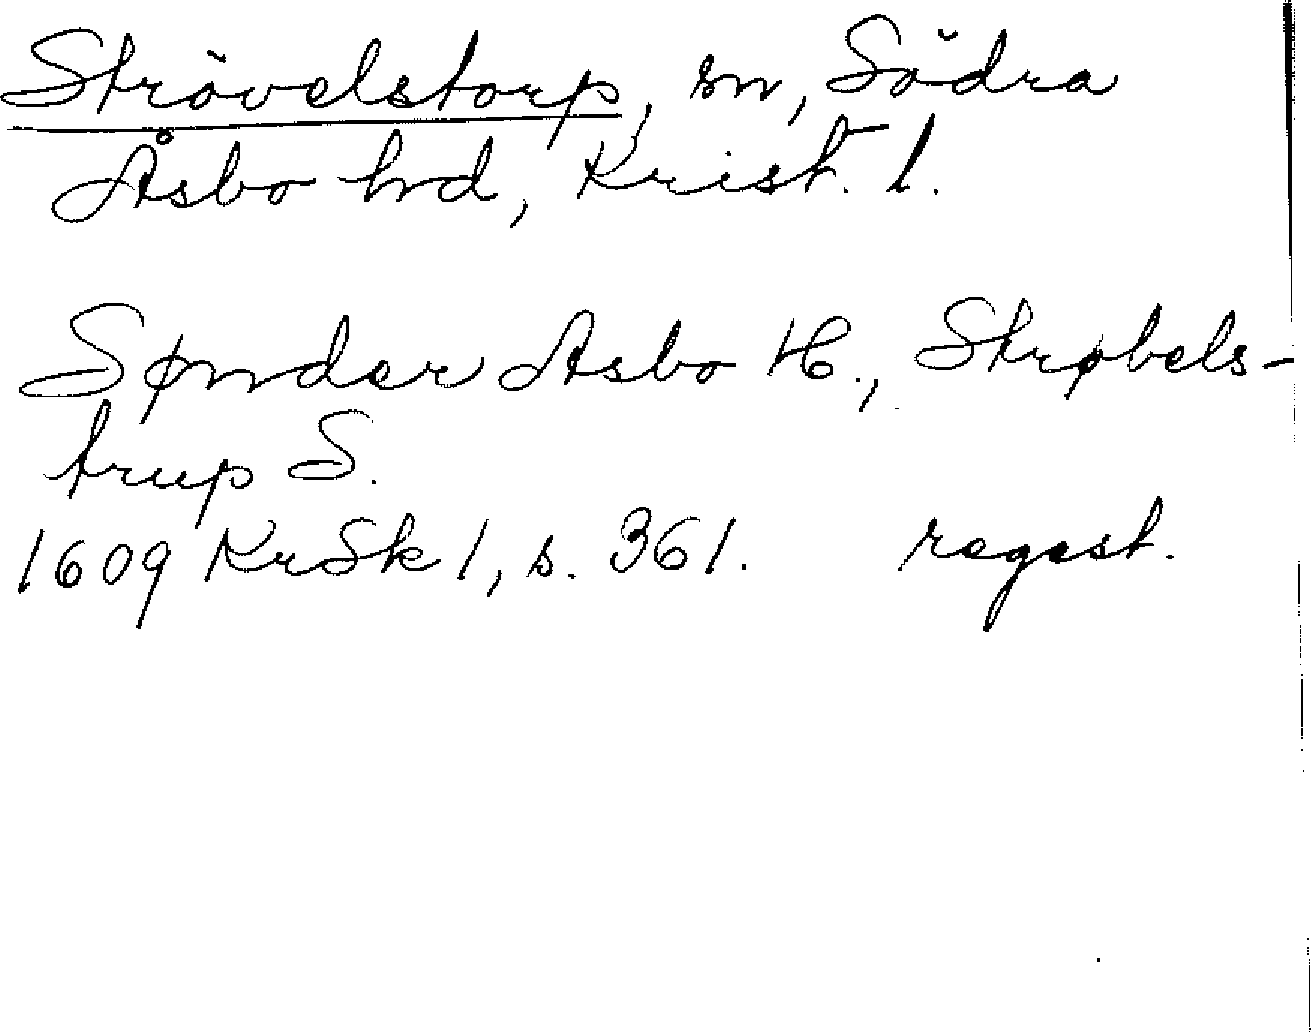 Strövelstorp, sn, Södra
Åsbo hrd, Krist. l.
Sønder Asbo H., Strøbels-
trup S.
1609 KrSk 1, s. 361. regest.